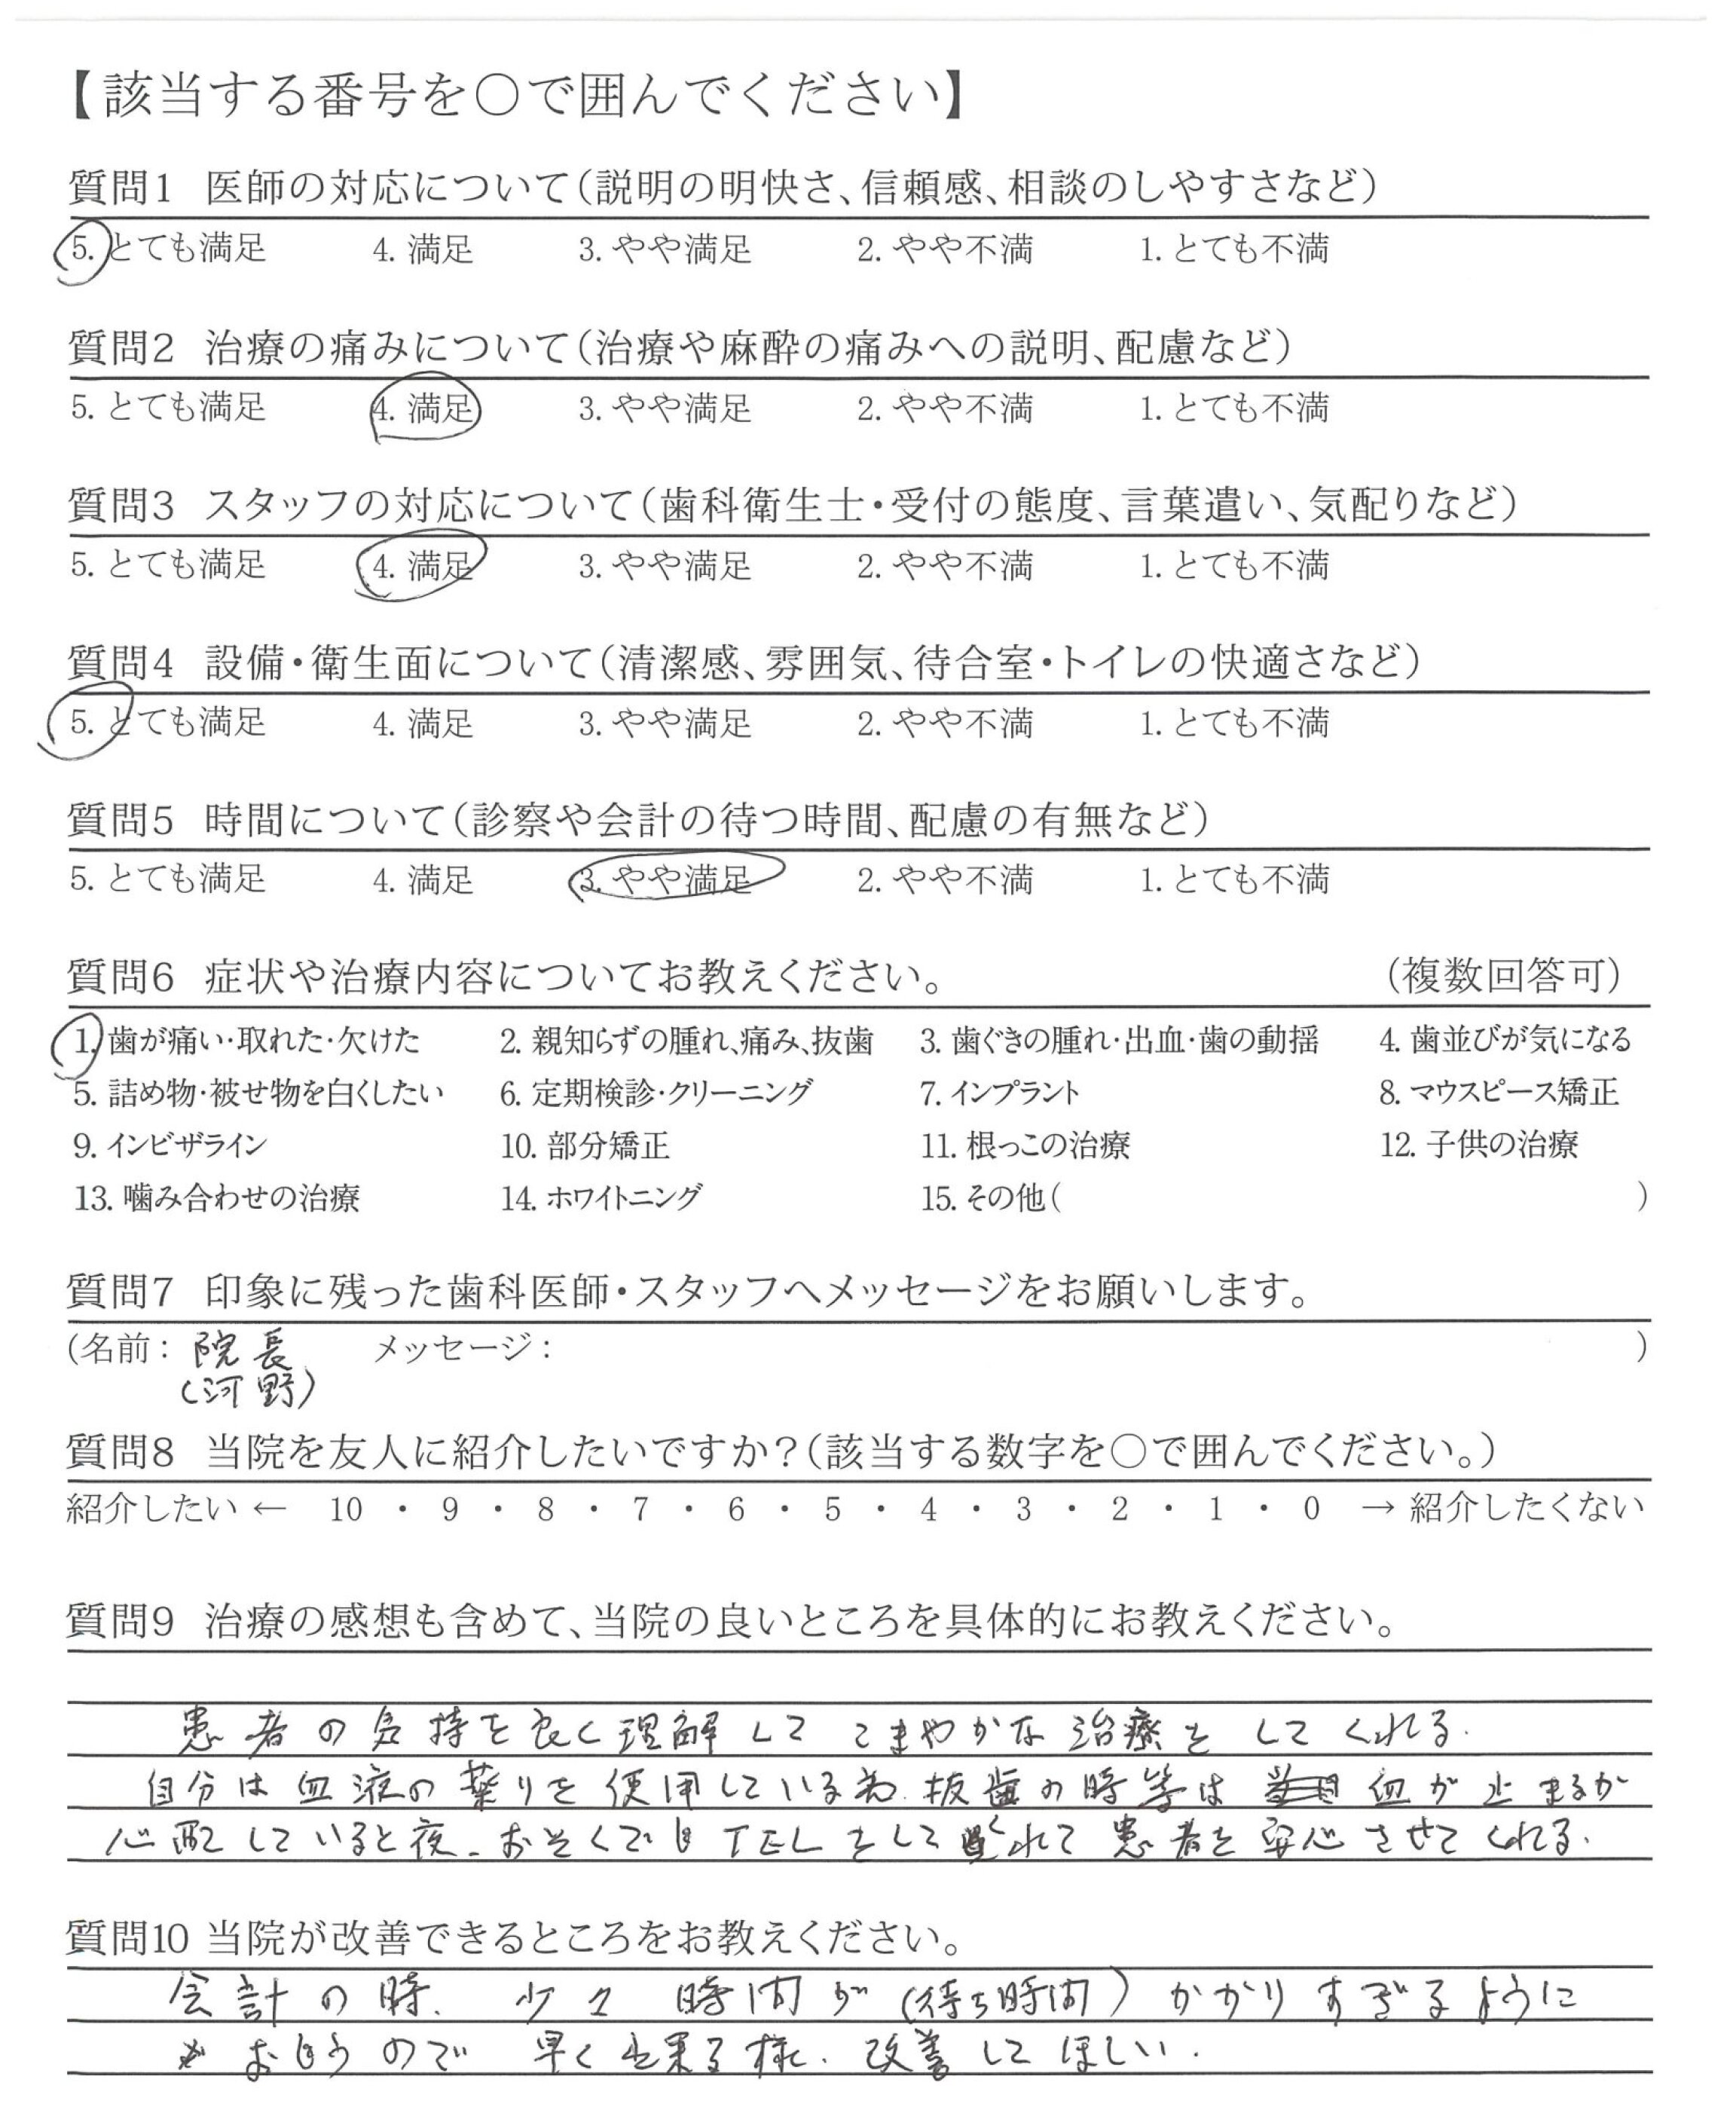 【該当する番号を○で囲んでください】
質問1 医師の対応について(説明の明快さ、信頼感、相談のしやすさなど)
5. とても満足 4. 満足 3. やや満足 2. やや不満 1. とても不満
質問2 治療の痛みについて(治療や麻酔の痛みへの説明、配慮など)
5. とても満足 4. 満足 3. やや満足 2. やや不満 1. とても不満
質問3 スタッフの対応について(歯科衛生士・受付の態度、言葉遣い、気配りなど)
5. とても満足 4. 満足 3. やや満足 2. やや不満 1. とても不満
質問4 設備・衛生面について(清潔感、雰囲気、待合室・トイレの快適さなど)
5. とても満足 4. 満足 3. やや満足 2. やや不満 1. とても不満
質問5 時間について(診察や会計の待つ時間、配慮の有無など)
5. とても満足 4. 満足 3. やや満足 2. やや不満 1. とても不満
質問6 症状や治療内容についてお教えください。 (複数回答可)
1. 歯が痛い・取れた・欠けた 2. 親知らずの腫れ、痛み、抜歯 3. 歯ぐきの腫れ・出血・歯の動揺 4. 歯並びが気になる
5. 詰め物・被せ物を白くしたい 6. 定期検診・クリーニング 7. インプラント 8. マウスピース矯正
9. インビザライン 10. 部分矯正 11. 根っこの治療 12. 子供の治療
13. 噛み合わせの治療 14. ホワイトニング 15. その他( )
質問7 印象に残った歯科医師・スタッフへメッセージをお願いします。
(名前: 院長 メッセージ: )
(河野)
質問8 当院を友人に紹介したいですか?(該当する数字を○で囲んでください。)
紹介したい ← 10 ・ 9 ・ 8 ・ 7 ・ 6 ・ 5 ・ 4 ・ 3 ・ 2 ・ 1 ・ 0 → 紹介したくない
質問9 治療の感想も含めて、当院の良いところを具体的にお教えください。
患者の気持を良く理解してこまやかな治療をしてくれる.
自分は血液の薬りを使用している為.抜歯の時等は 血が止まるか
心配していると夜.おそくでもTELをしてくれて患者を安心させてくれる.
質問10 当院が改善できるところをお教えください。
会計の時.少々時間が(待ち時間)かかりすぎるように
おもうので 早く出来る様.改善してほしい.